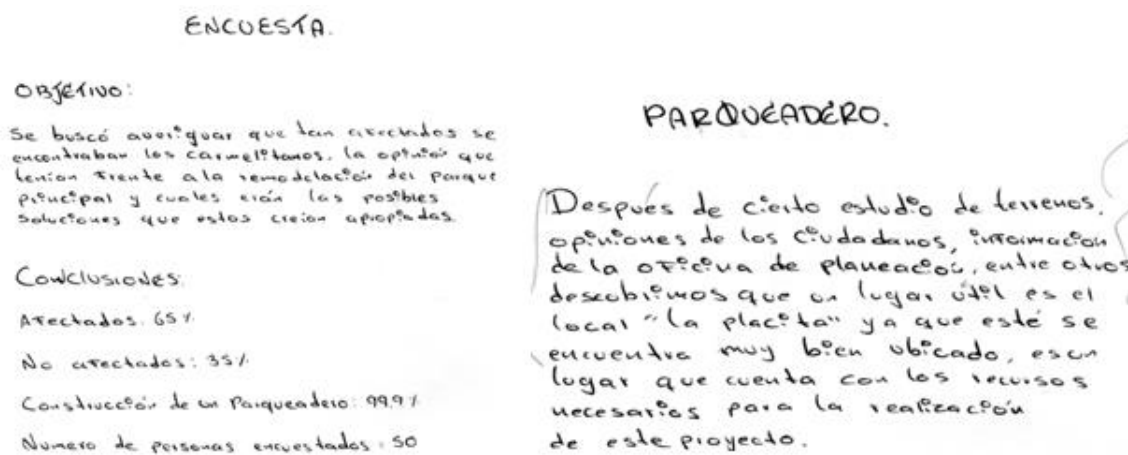 ENCUESTA.
OBJETIVO:
Se buscó averiguar que tan afectados se
encontraban los carmelitanos, la opinión que
tenían frente a la remodelación del parque
principal y cuales eran las posibles
soluciones que estos creían apropiadas.
CONCLUSIONES:
Afectados: 65%
No afectados: 35%
Construcción de un Parqueadero: 99,9%
Numero de personas encuestadas: 50
PARQUEADERO.
Después de cierto estudio de terrenos,
opiniones de los ciudadanos, información
de la oficina de planeación, entre otros
descubrimos que un lugar útil es el
local "la placita" ya que esté se
encuentra muy bien ubicado, es un
lugar que cuenta con los recursos
necesarios para la realización
de este proyecto.